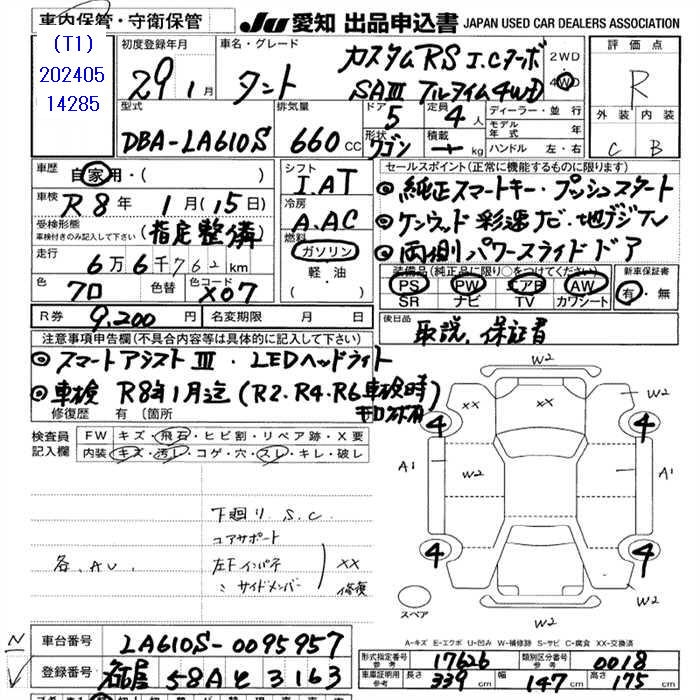 車内保管・守衛保管
JU 愛知 出品申込書 JAPAN USED CAR DEALERS ASSOCIATION
(T1)
202405
14285
初度登録年月 車名・グレード
29年 1月 タント カスタムRS I.Cターボ
SAIII フルタイム4WD
2WD
4WD
評価点
R
外装 内装
C B
型式 排気量 ドア 定員 ディーラー・並行
DBA-LA610S 660cc 5 4人
形状 ワゴン 積載 kg
モデル年式 年式
ハンドル 左・右
車歴 自家用・( )
車検 R8年 1月(15日)
受検形態 (指定整備)
車検付きのみ記入して下さい
走行 6万6千762km
色 クロ 色替 色コード X07
R券 9,200円 名変期限 月 日
シフト I.AT
冷房 A.AC
燃料 ガソリン
軽油
( )
セールスポイント(正常に機能するものに限ります)
◎純正スマートキー・プッシュスタート
◎ケンウッド彩速ナビ・地デジTV
◎両側パワースライドドア
装備品(純正品に限り○をつけてください) 新車保証書
PS PW エアB AW 有・無
SR ナビ TV カワシート
後日品 取説、保証書
注意事項申告欄(不具合内容等は具体的に記入して下さい)
◎スマートアシストIII・LEDヘッドライト
◎車検 R8年1月迄(R2・R4・R6車検時
修復歴 有 (箇所
検査員記入欄 FW キズ・飛石・ヒビ割・リペア跡・X要
内装 キズ・汚レ・コゲ・穴・スレ・キレ・破レ
下廻り S.C.
コアサポート
左F インパネ
〃 サイドメンバー
XX
修復
各、AU、
W2
XX
XX
W2
4
4
A1
W2
W2
A1
4
4
W2
W2
スペア
A-キズ E-エクボ U-凹み W-補修跡 S-サビ C-腐食 XX-交換済
車台番号 LA610S-0095957
登録番号 名古屋 58A と 3163
形式指定番号 参考 17626 類別区分番号 参考 0018
車庫証明用 参考 長さ 339cm 幅 147cm 高さ 175cm